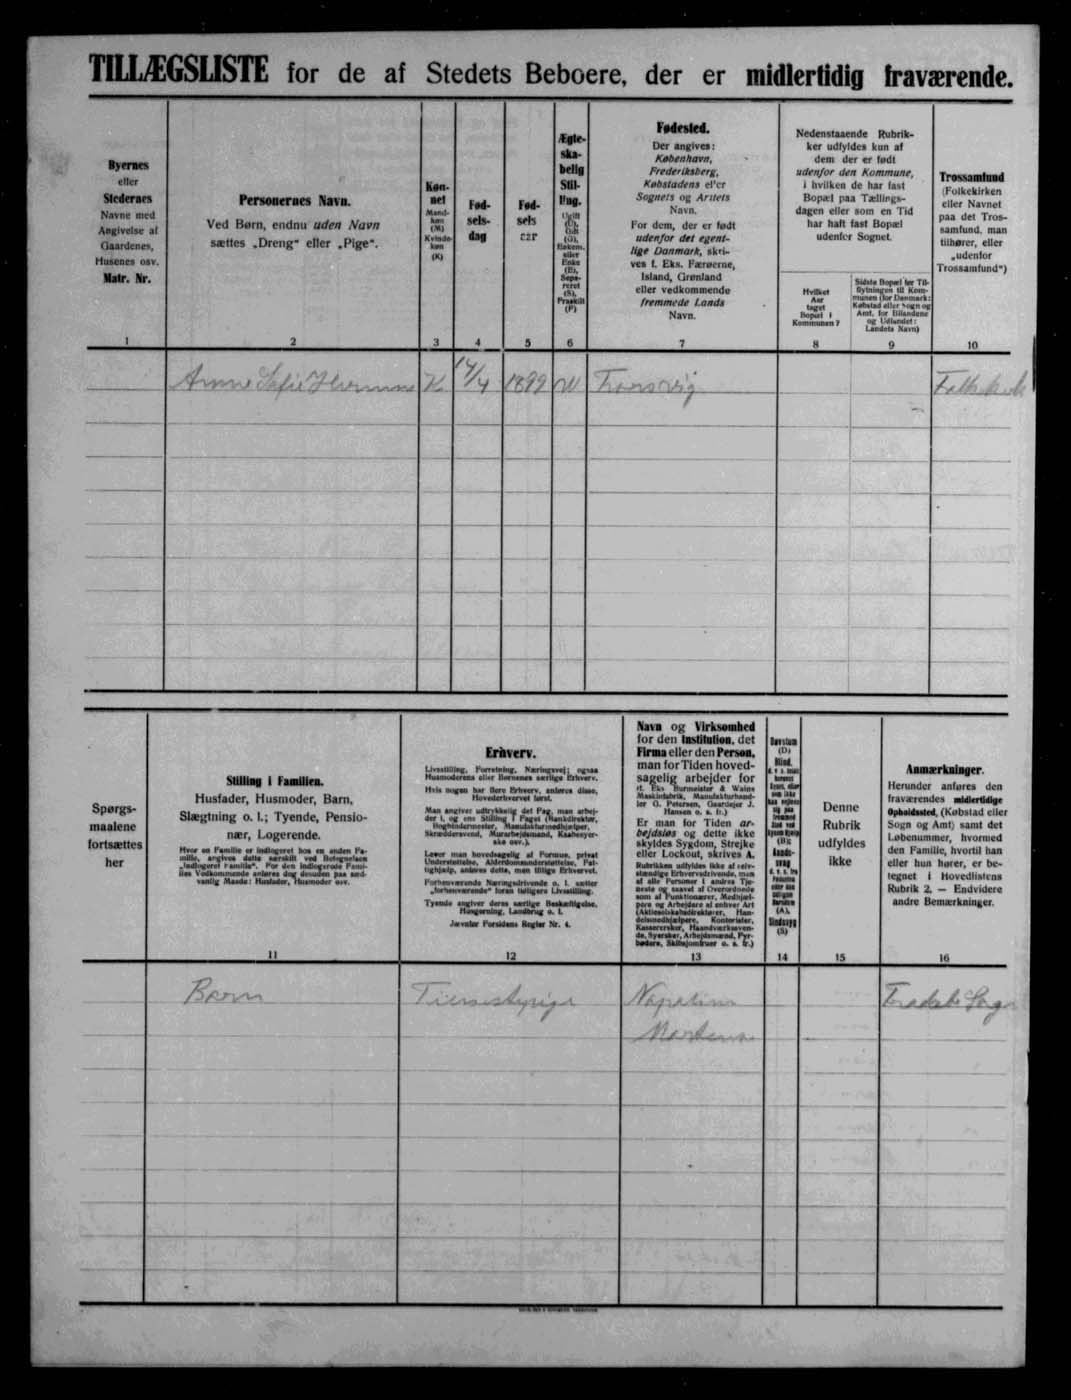 TILLÆGSLISTE for de af Stedets Beboere, der er midlertidig fraværende.
Byernes
eller
Stedernes
Navne med
Angivelse af
Gaardenes,
Husenes osv.
Matr. Nr.
Personernes Navn.
Ved Børn, endnu uden Navn
sættes „Dreng“ eller „Pige“.
Køn-
net
Mand-
køn
(M)
Kvinde-
køn
(K)
Fød-
sels-
dag
Fød-
sels
aar
Ægte-
ska-
belig
Stil-
ling.
Ugift
(U),
Gift
(G),
Enkem.
eller
Enke
(E),
Sepa-
reret
(S),
Fraskilt
(F)
Fødested.
Der angives:
København,
Frederiksberg,
Købstadens el'er
Sognets og Amtets
Navn.
For dem, der er født
udenfor det egent-
lige Danmark, skri-
ves f. Eks. Færøerne,
Island, Grønland
eller vedkommende
fremmede Lands
Navn.
Nedenstaaende Rubrik-
ker udfyldes kun af
dem der er født
udenfor den Kommune,
i hvilken de har fast
Bopæl paa Tællings-
dagen eller som en Tid
har haft fast Bopæl
udenfor Sognet.
Hvilket
Aar
taget
Bopæl i
Kommunen?
Sidste Bopæl før Til-
flytningen til Kom-
munen (for Danmark:
Købstad eller Sogn og
Amt, for Bilandene
og Udlandet:
Landets Navn)
Trossamfund
(Folkekirken
eller Navnet
paa det Tros-
samfund, man
tilhører, eller
„udenfor
Trossamfund“)
1 2 3 4 5 6 7 8 9 10
Anne Sofie K 14/4 1899 U
Spørgs-
maalene
fortsættes
her
Stilling i Familien.
Husfader, Husmoder, Barn,
Slægtning o. l.; Tyende, Pensio-
nær, Logerende.
Hvor en Familie er indlogeret hos en anden Fa-
milie, angives dette særskilt ved Betegnelsen
„indlogeret Familie“. For den indlogerede Fami-
lies Vedkommende anføres dog desuden paa sæd-
vanlig Maade: Husfader, Husmoder osv.
Erhverv.
Livsstilling, Forretning, Næringsvej; ogsaa
Husmoderens eller Børnenes særlige Erhverv.
Hvis nogen har flere Erhverv, anføres disse,
Hovederhvervet først.
Man angiver udtrykkelig det Fag, man arbej-
der i, og ens Stilling i Faget (Bankdirektør,
Bogbindermester, Manufakturmedhjælper,
Skræddersvend, Murarbejdsmand, Kaabesyer-
ske osv.).
Lever man hovedsagelig af Formue, privat
Understøttelse, Alderdomsunderstøttelse, Fat-
tighjælp, anføres dette, men tillige Erhvervet.
Forhenværende Næringsdrivende o. l. sætter
„forhenværende“ foran tidligere Livsstilling.
Tyende angiver deres særlige Beskæftigelse,
Husgerning, Landbrug o. l.
Jævnfør Forsidens Regler Nr. 4.
Navn og Virksomhed
for den Institution, det
Firma eller den Person,
man for Tiden hoved-
sagelig arbejder for
(f. Eks Burmeister & Wains
Maskinfabrik, Manufakturhand-
ler O. Petersen, Gaardejer J.
Hansen o. s. fr.)
Er man for Tiden ar-
bejdsløs og dette ikke
skyldes Sygdom, Strejke
eller Lockout, skrives A.
Rubrikken udfyldes ikke af selv-
stændige Erhvervsdrivende, men
af alle Personer i andres Tje-
neste og saavel af Overordnede
som af Funktionærer, Medhjæl-
pere og Arbejdere af enhver Art
(Aktieselskabsdirektører, Han-
delsmedhjælpere, Kontorister,
Kasserersker, Haandværkssven-
de, Syersker, Arbejdsmænd, Fyr-
bødere, Skibsjomfruer o. s. fr.)
Døvstum
(D)
Blind,
(B);
(A),
Sindssyg
(S)
Denne
Rubrik
udfyldes
ikke
Anmærkninger.
Herunder anføres den
fraværendes midlertidige
Opholdssted, (Købstad eller
Sogn og Amt) samt det
Løbenummer, hvormed
den Familie, hvortil han
eller hun hører, er be-
tegnet i Hovedlistens
Rubrik 2. — Endvidere
andre Bemærkninger.
11 12 13 14 15 16
Barn